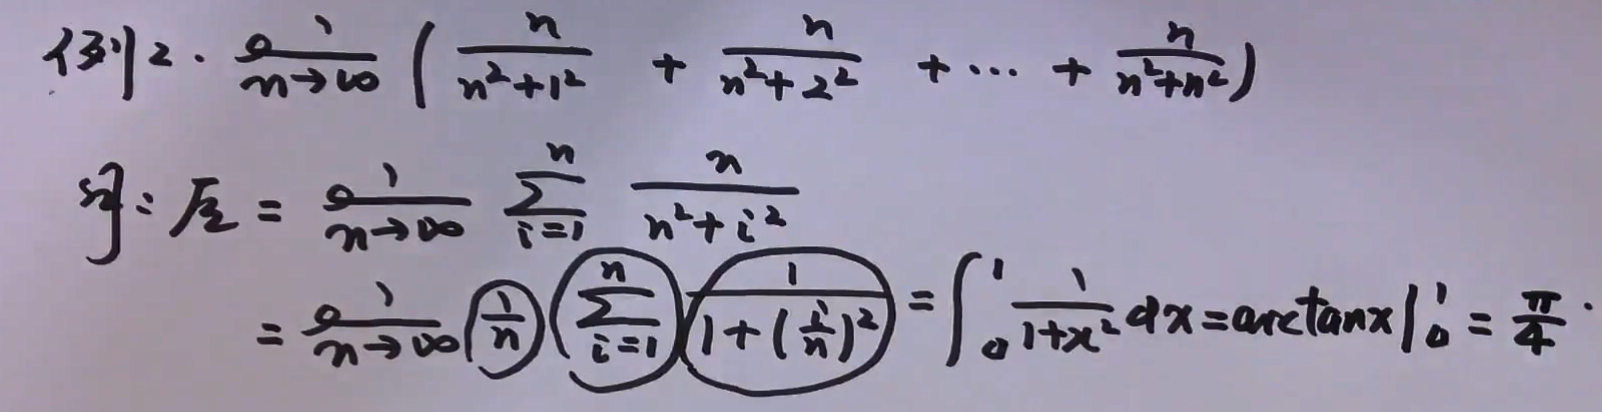 例2. lim n→∞ ( n/(n²+1²) + n/(n²+2²) + ... + n/(n²+n²) )
解: 原 = lim n→∞ ∑_{i=1}^{n} n/(n²+i²)
= lim n→∞ (1/n) ∑_{i=1}^{n} 1/(1+(i/n)²) = ∫₀¹ 1/(1+x²) dx = arctanx |₀¹ = π/4.